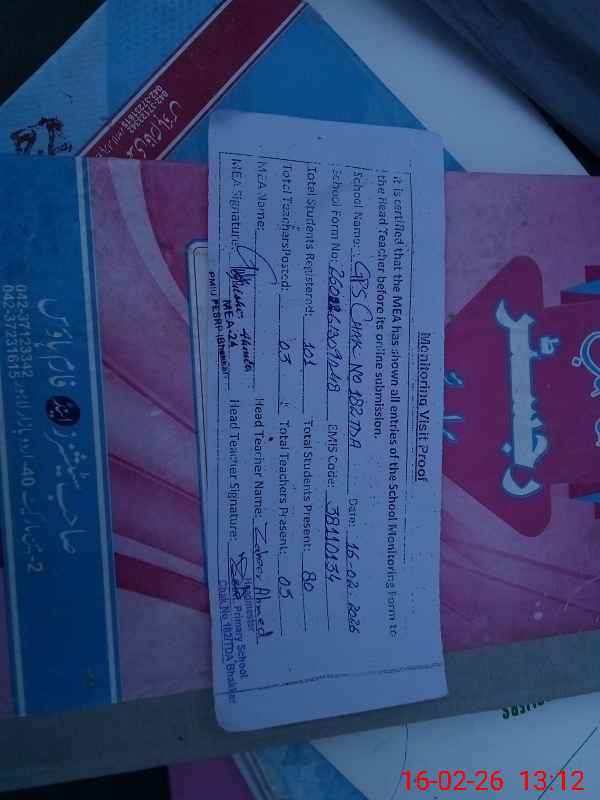 Monitoring Visit Proof
It is certified that the MEA has shown all entries of the School Monitoring Form to
the Head Teacher before its online submission.
School Name: GPS Chak No 182 TDA Date: 16-02-2026
School Form No: EMIS Code: 38110134
Total Students Registered: 101 Total Students Present: 80
Total Teachers Posted: 03 Total Teachers Present: 03
MEA Name: Head Teacher Name: Zaheer Ahmed
MEA Signature: Head Teacher Signature:
MEA-24
PMIU PESRP (Bhakkar)
Headmaster
Primary School
Chak No.182/TDA Bhakkar
042-37123342
042-37231615
رجسٹر
صاحب سٹیشنرز اینڈ فارم ہاؤس
042-37123342
042-37231615
16-02-26 13:12